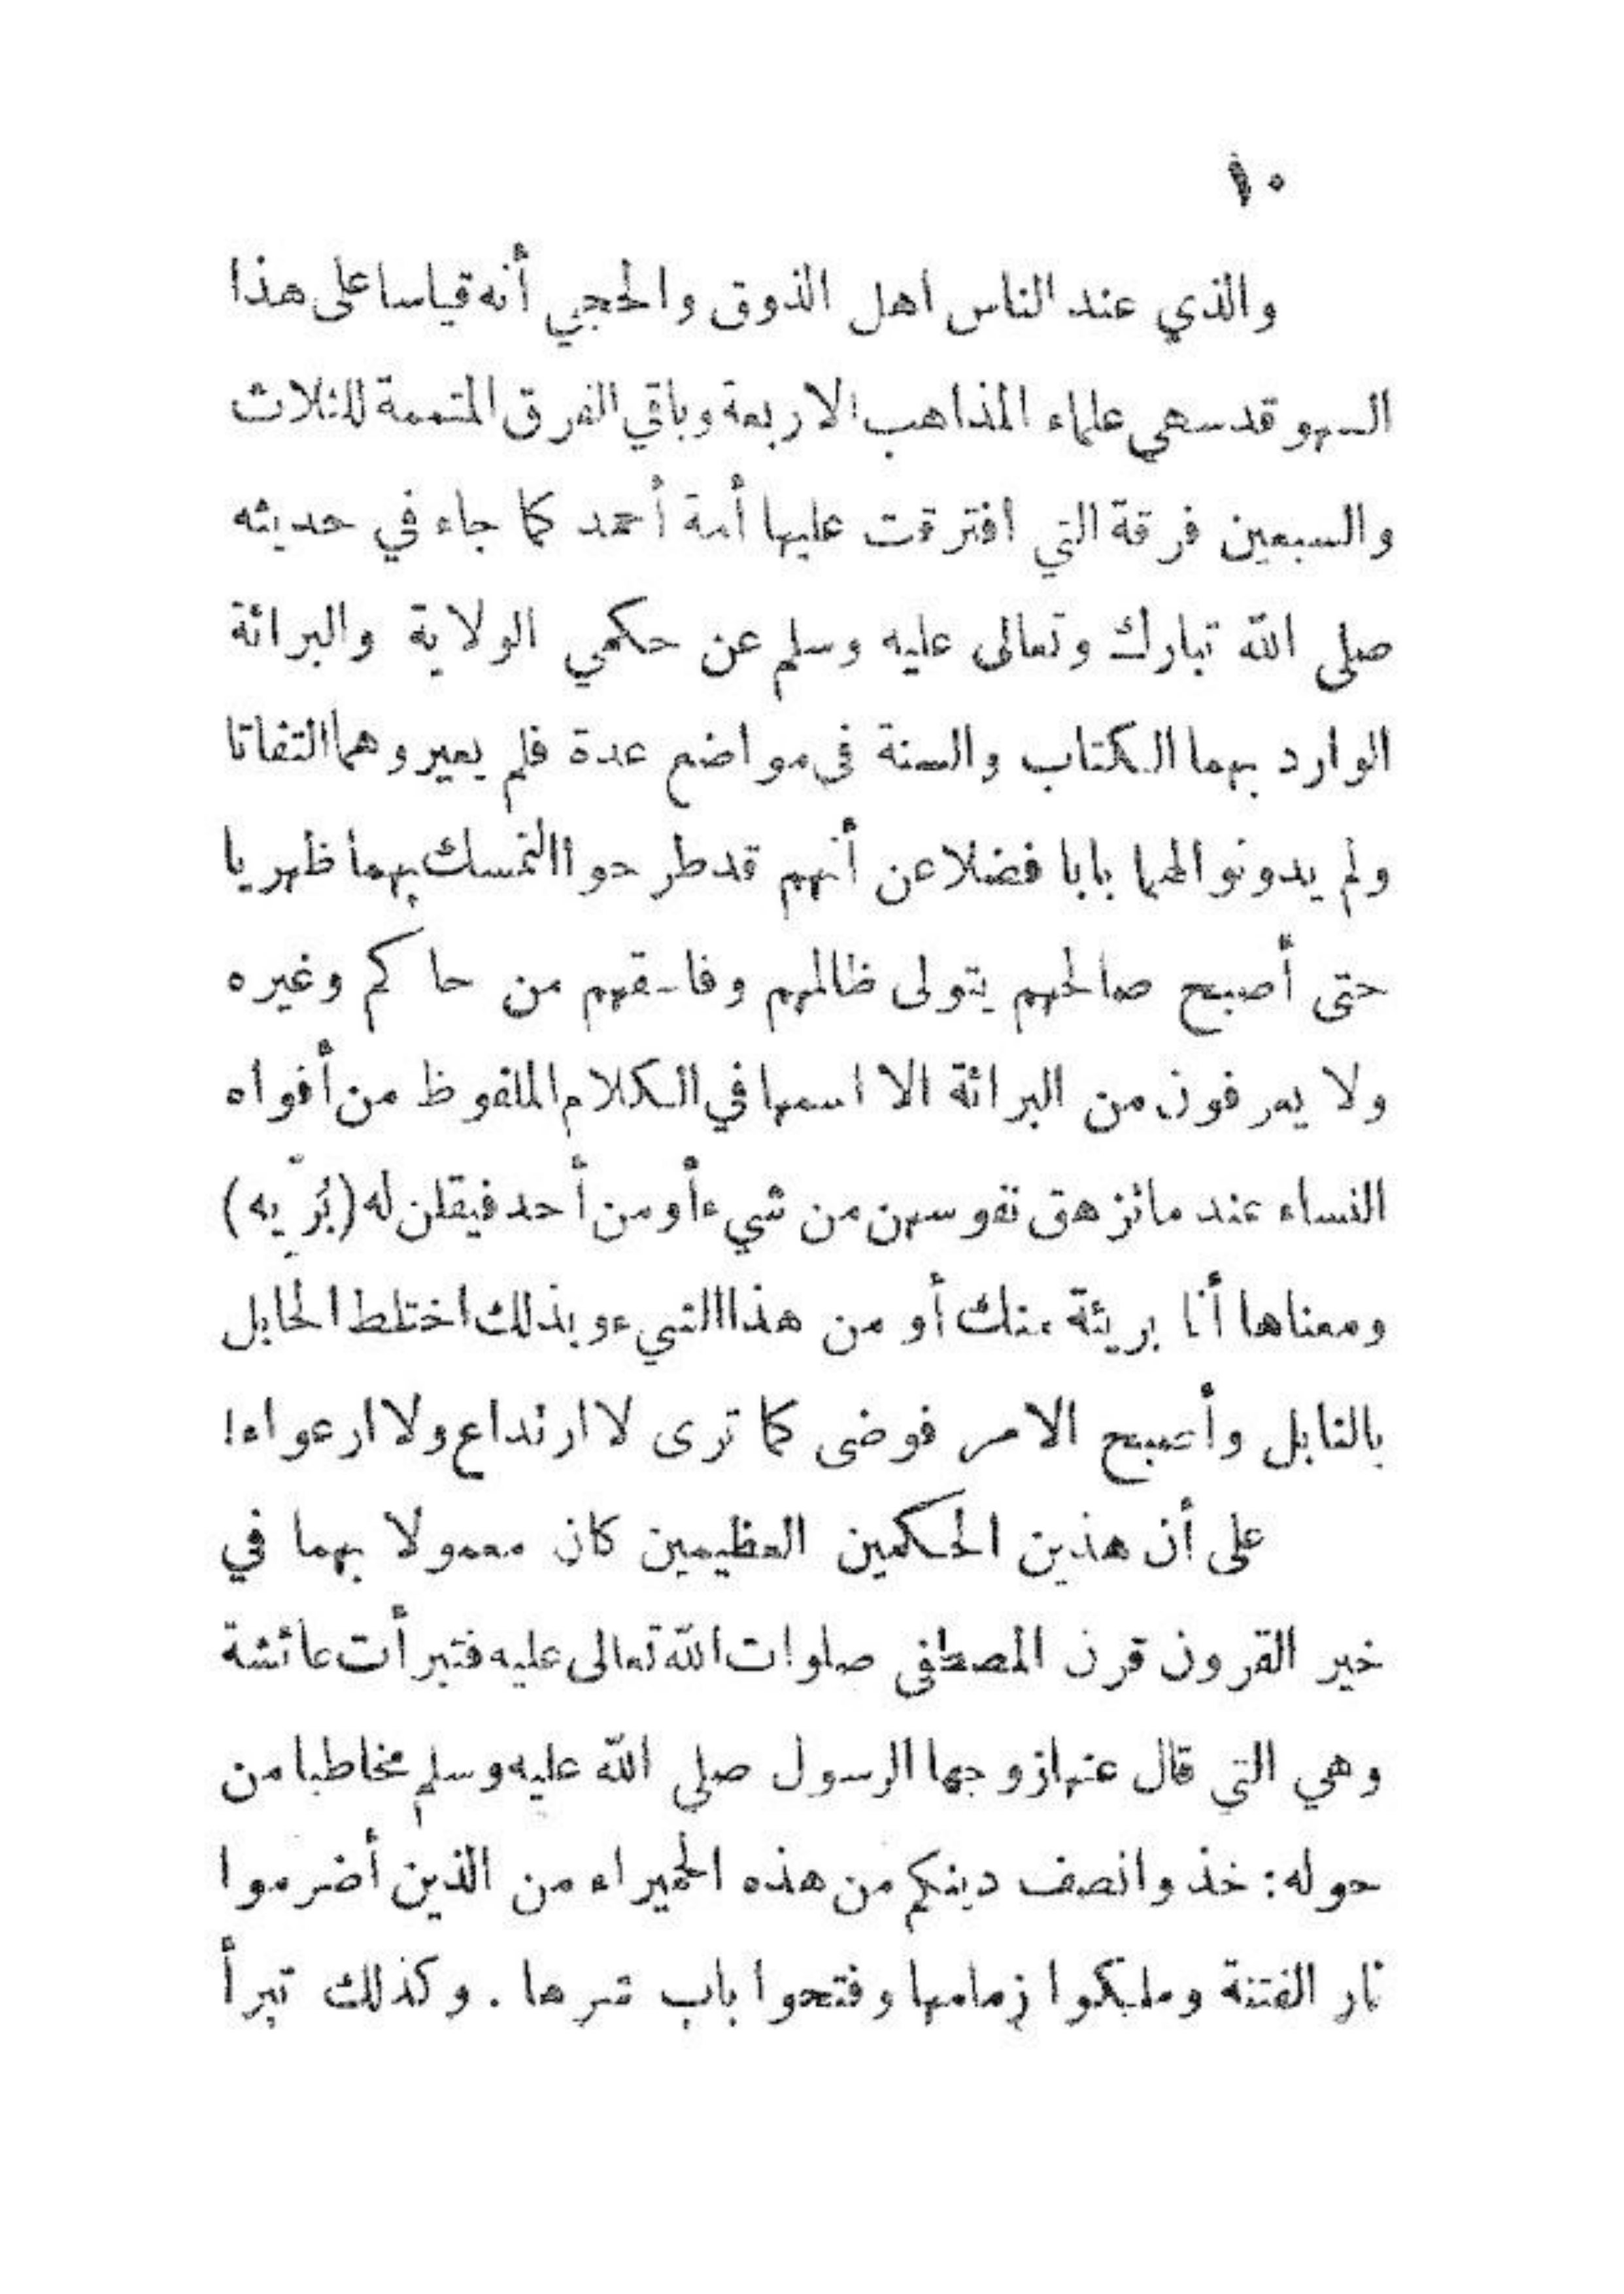 ١٠
والذي عند الناس اهل الذوق والحجي أنه قياسا على هذا
السهو قد سهي علماء المذاهب الاربعة وباقي الفرق المتممة للثلاث
والسبعين فرقة التي افترقت عليها أمة أحمد كما جاء في حديثه
صلى الله تبارك وتعالى عليه وسلم عن حكمي الولاية والبرائة
الوارد بهما الكتاب والسنة فى مواضع عدة فلم يعيروهما التفاتا
ولم يدونوا لهما بابا فضلا عن أنهم قد طرحوا التمسك بهما ظهريا
حتى أصبح صالحهم يتولى ظالمهم وفاسقهم من حاكم وغيره
ولا يعرفون من البرائة الا اسمها في الكلام الملفوظ من أفواه
النساء عند ما تزهق نفوسهن من شيء أو من أحد فيقلن له (بُرِّيه)
ومعناها أنا بريئة منك أو من هذا الشيء وبذلك اختلط الحابل
بالنابل وأصبح الامر فوضى كما ترى لا ارتداع ولا ارعواء!
على أن هذين الحكمين العظيمين كان معمولا بهما في
خير القرون قرن المصطفى صلوات الله تعالى عليه فتبرأت عائشة
وهي التي قال عنها زوجها الرسول صلى الله عليه وسلم مخاطبا من
حوله: خذوا نصف دينكم من هذه الحميراء من الذين أضرموا
نار الفتنة وملكوا زمامها وفتحوا باب شرها . وكذلك تبرأ